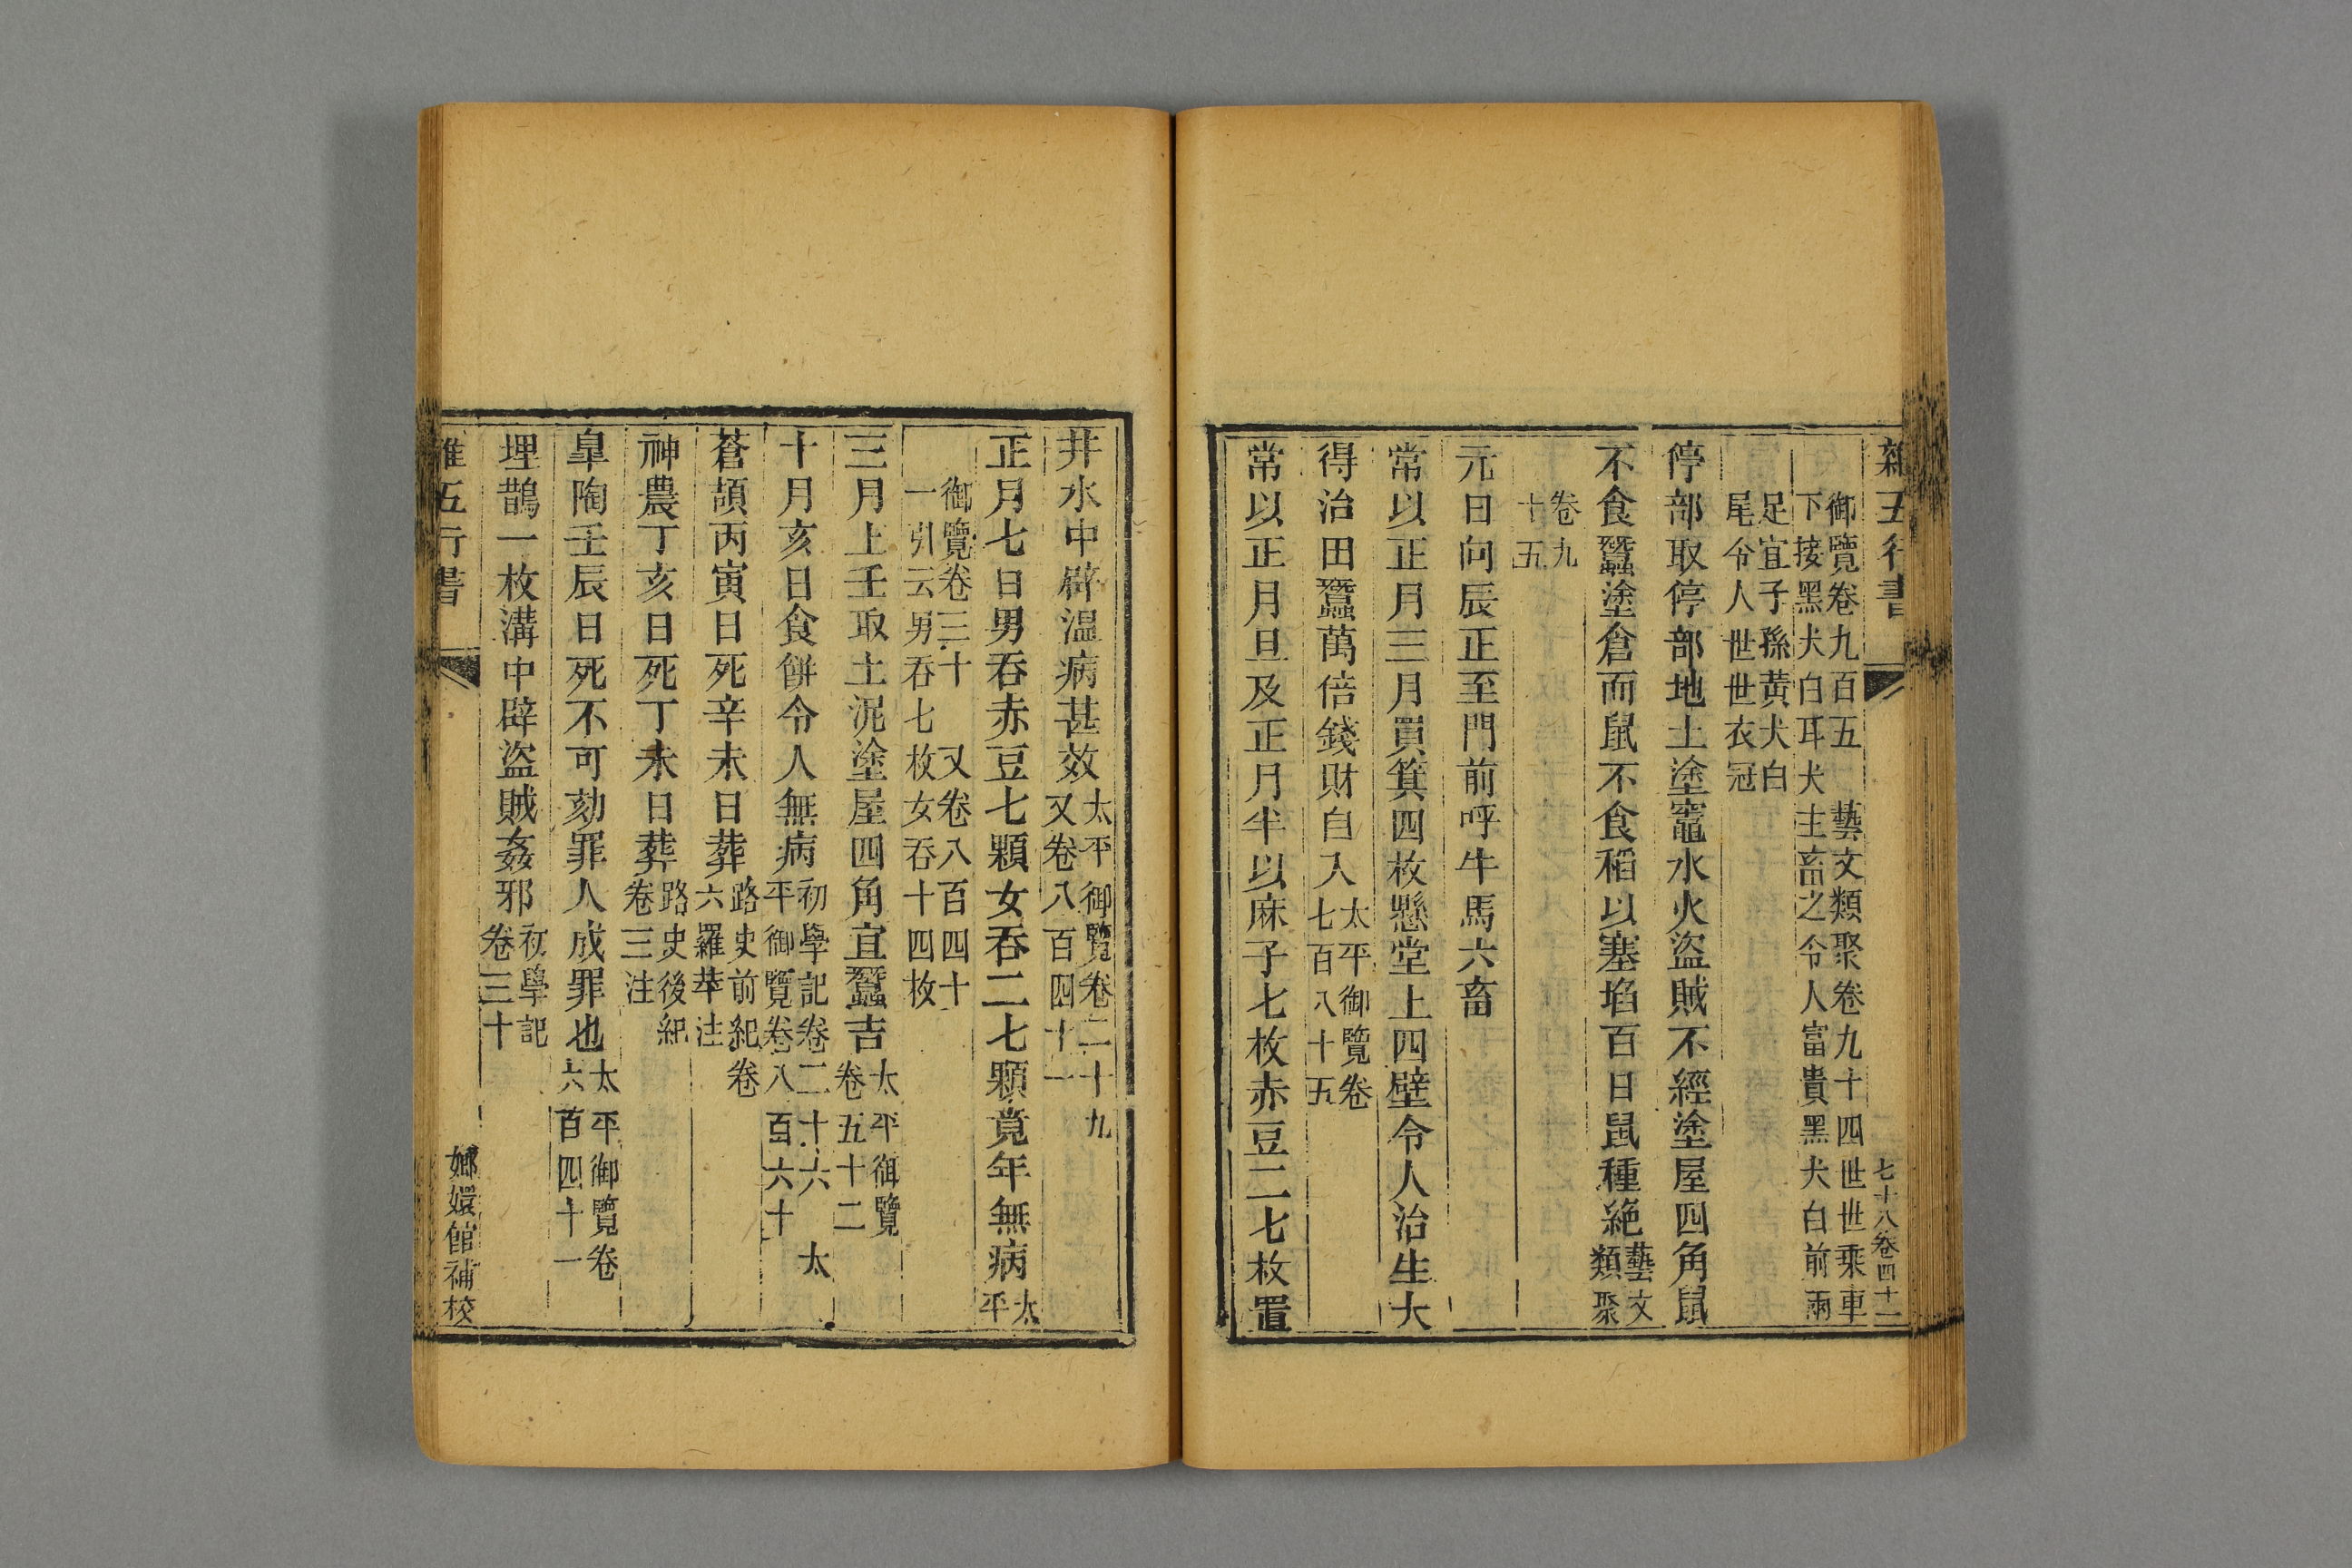 雜五行書
七十八卷四十一
御覽卷九百五　藝文類聚卷九十四世世乘車
下接黑犬白耳犬主畜之令人富貴黑犬白前兩
足宜子孫黃犬白
尾令人世世衣冠
停部取停部地土塗竈水火盜賊不經塗屋四角鼠
不食蠶塗倉而鼠不食稻以塞埳百日鼠種絶藝文
類聚
卷九
十五
元日向辰正至門前呼牛馬六畜
常以正月三月買箕四枚懸堂上四壁令人治生大
得治田蠶萬倍錢財自入太平御覽卷
七百八十五
常以正月旦及正月半以麻子七枚赤豆二七枚置
井水中辟溫病甚效太平御覽卷二十九
又卷八百四十一
正月七日男吞赤豆七顆女吞二七顆竟年無病太
平
御覽卷三十　又卷八百四十
一引云男吞七枚女吞十四枚
三月上壬取土泥塗屋四角宜蠶吉太平御覽
卷五十二
十月亥日食餅令人無病初學記卷二十六　太
平御覽卷八百六十
蒼頡丙寅日死辛未日葬路史前紀卷
六羅苹注
神農丁亥日死丁未日葬路史後紀
卷三注
皐陶壬辰日死不可劾罪人成罪也太平御覽卷
六百四十一
埋鵲一枚溝中辟盜賊姦邪初學記
卷三十
雜五行書
嫏嬛館補校